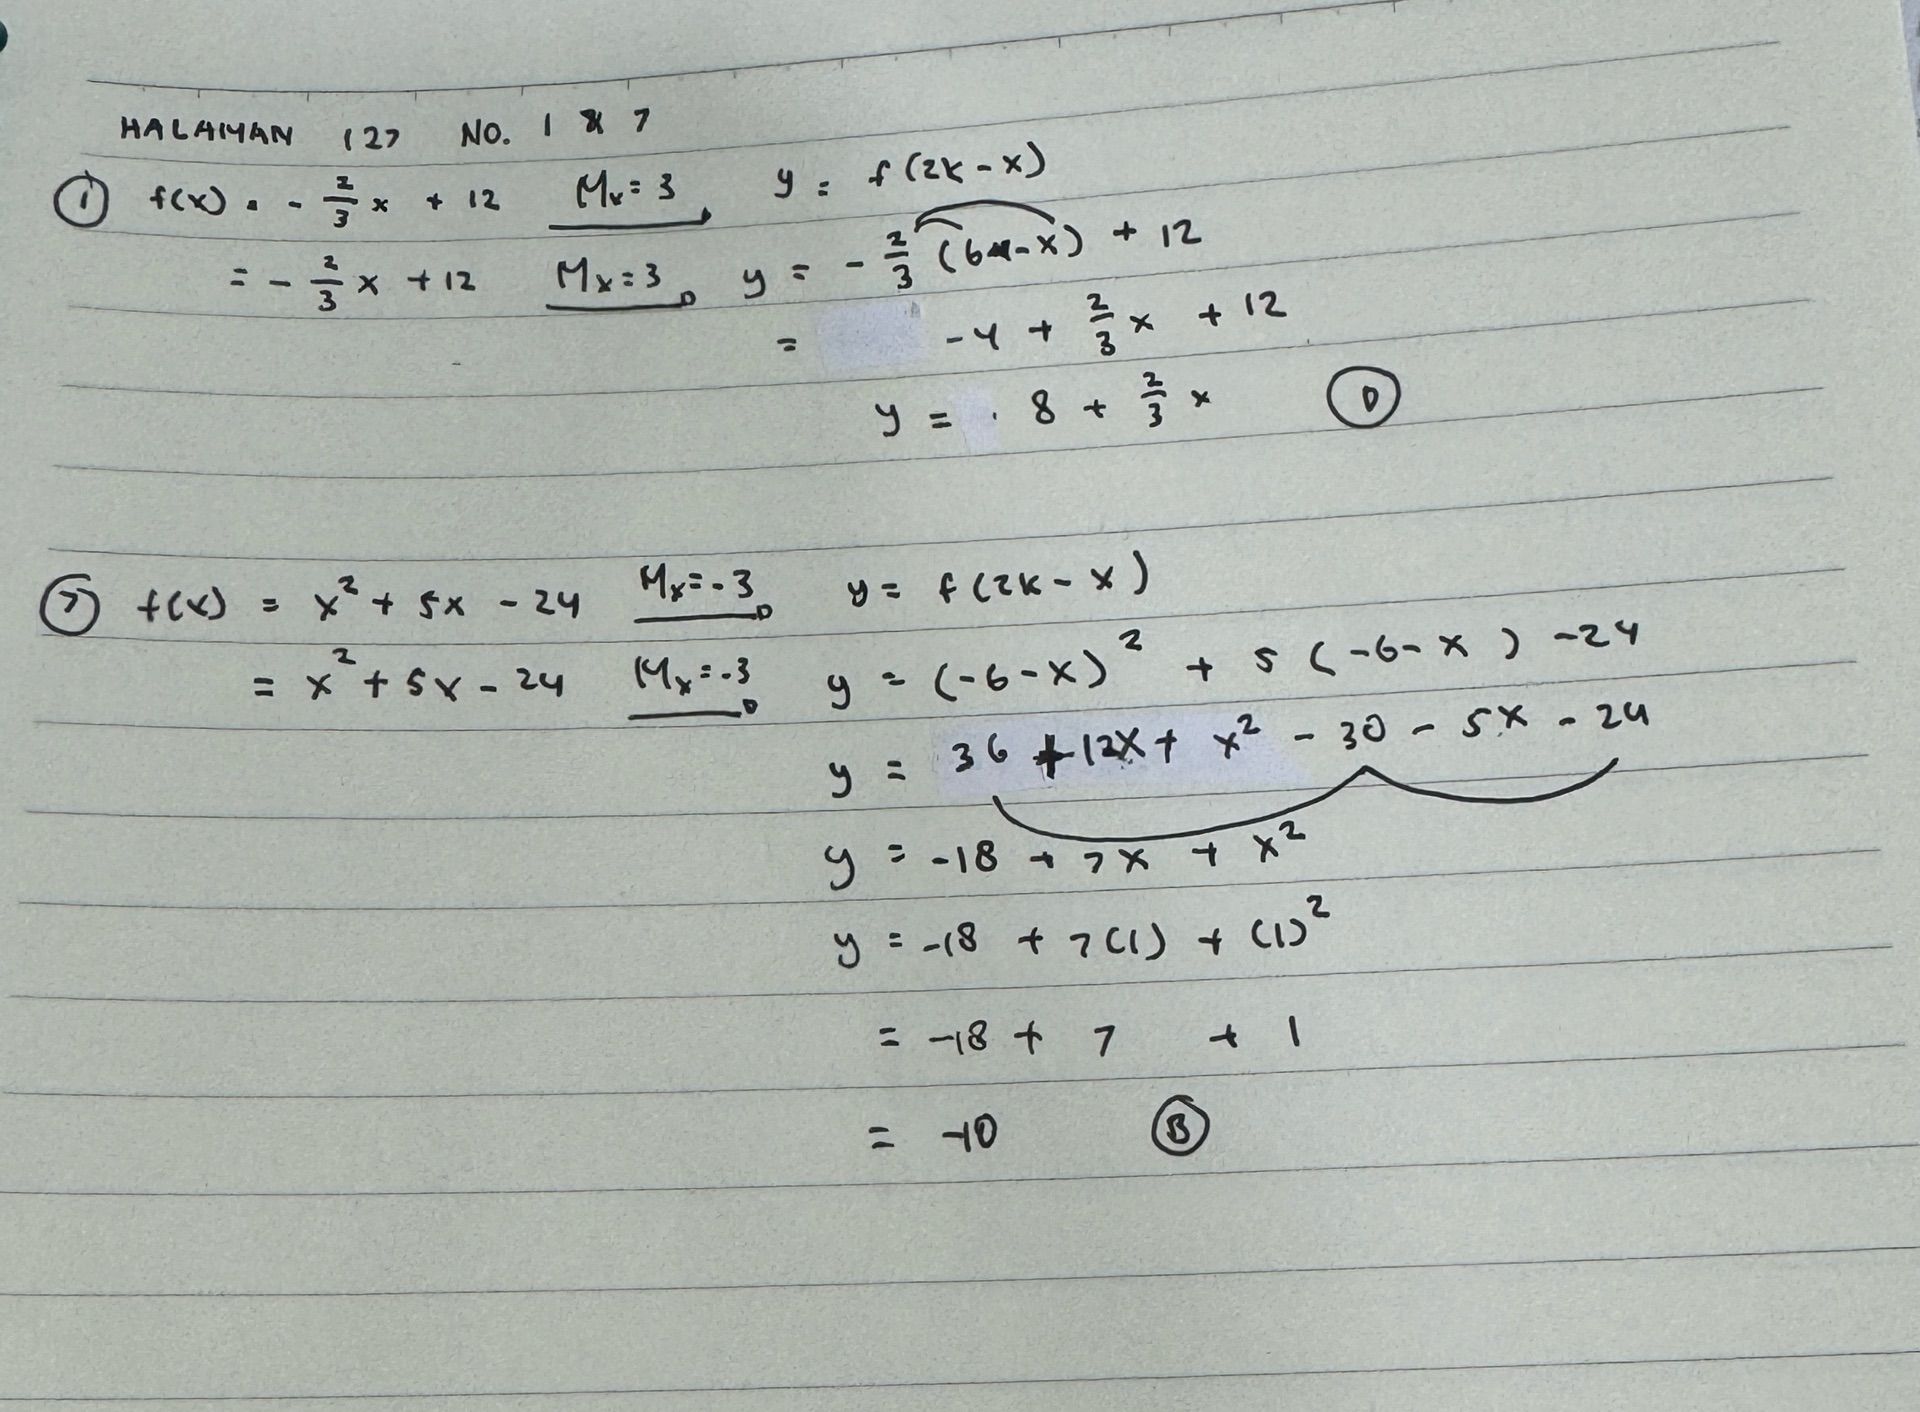 HALAMAN 127 NO. 1 & 7
① f(x) = - 2/3 x + 12 Mx=3 y = f(2k-x)
= - 2/3 x + 12 Mx=3 y = - 2/3 (6-x) + 12
= -4 + 2/3 x + 12
y = 8 + 2/3 x Ⓓ
⑦ f(x) = x² + 5x - 24 Mx=-3 y = f(2k-x)
= x² + 5x - 24 Mx=-3 y = (-6-x)² + 5(-6-x) -24
y = 36 + 12x + x² - 30 - 5x - 24
y = -18 + 7x + x²
y = -18 + 7(1) + (1)²
= -18 + 7 + 1
= -10 Ⓑ